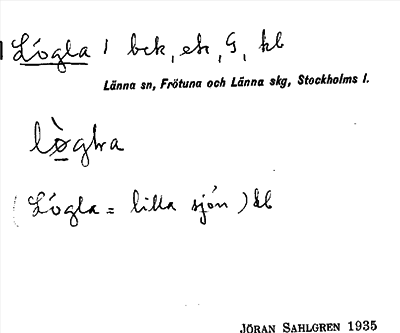 Lögla / bek, ek, G, kb
Länna sn, Frötuna och Länna skg, Stockholms l.
lògla
(Lögla = lilla sjön) kb
JÖRAN SAHLGREN 1935